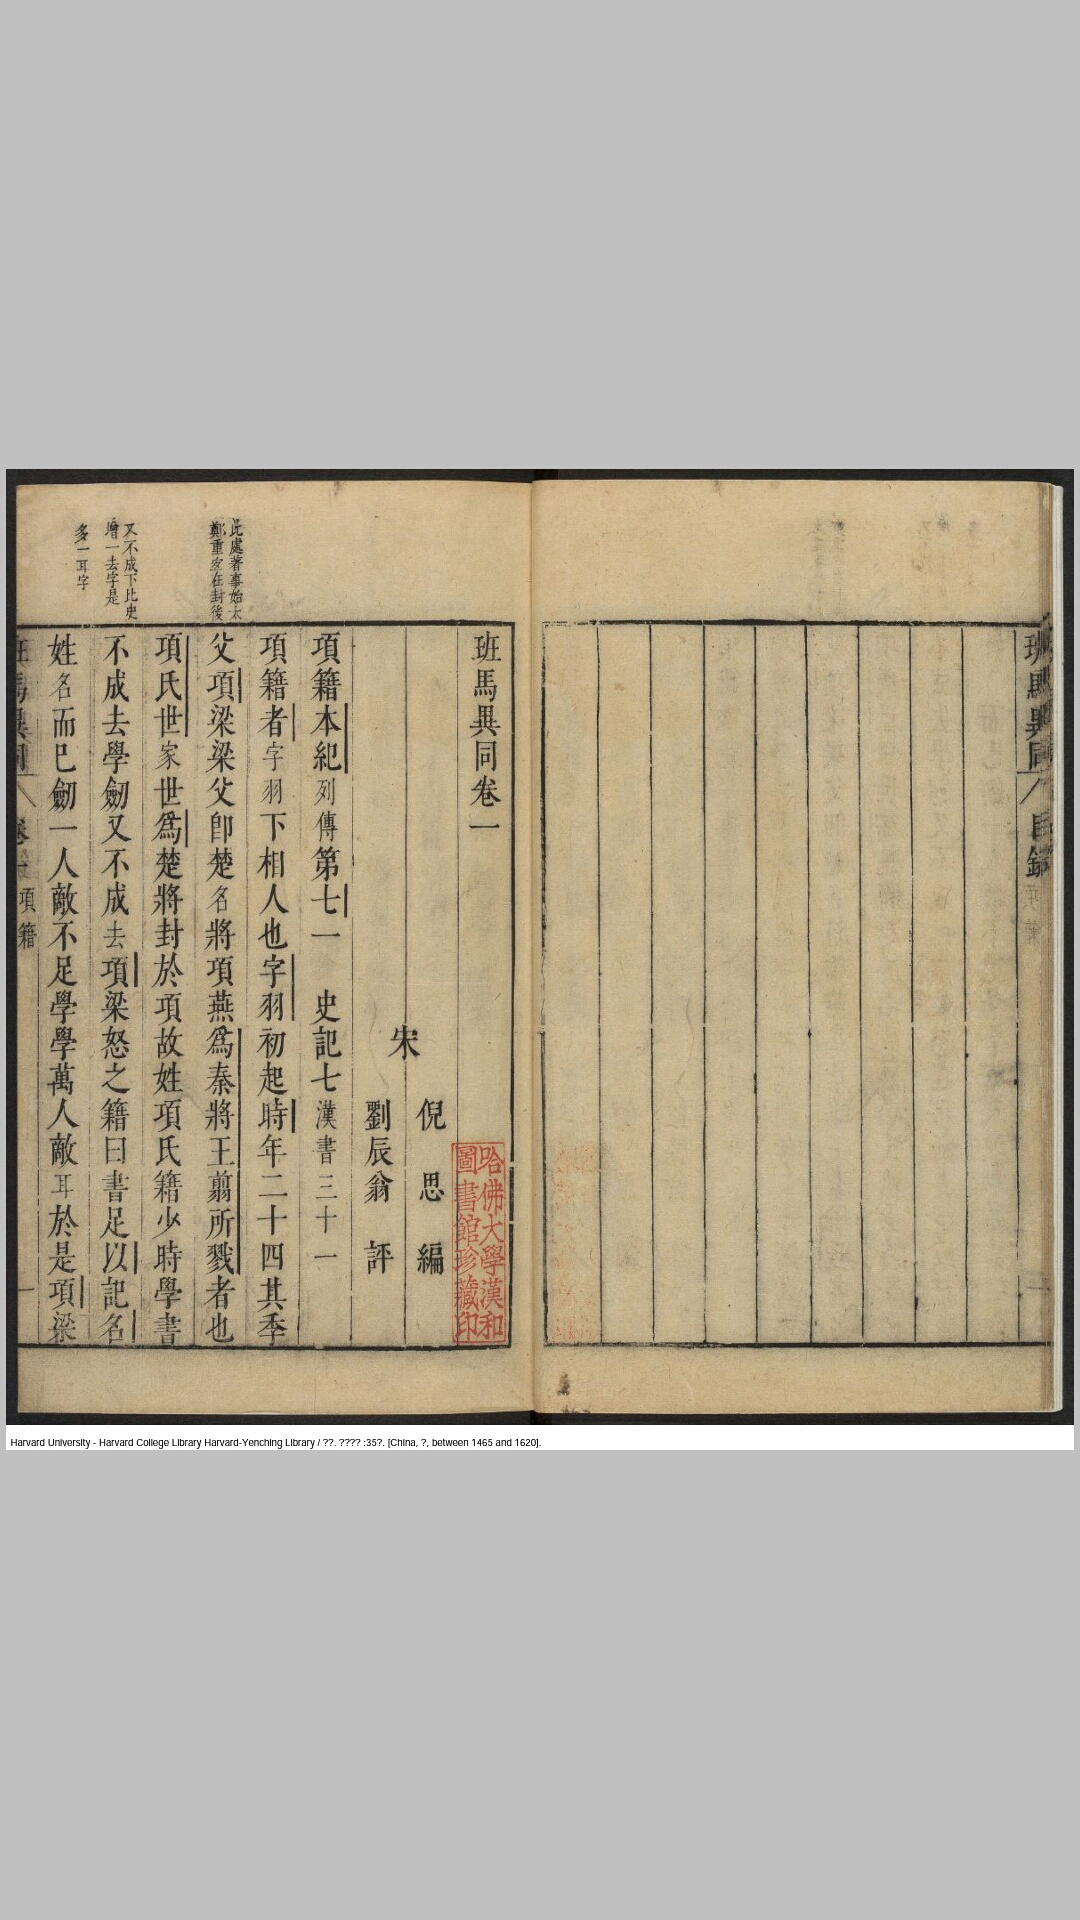 班馬異同
目錄
班馬異同卷一
宋
倪思編
劉辰翁評
項籍本紀列傳第七一 史記七漢書三十一
項籍者字羽下相人也字羽初起時年二十四其季
父項梁梁父卽楚名將項燕爲秦將王翦所戮者也
項氏世家世爲楚將封於項故姓項氏籍少時學書
不成去學劒又不成去項梁怒之籍曰書足以記名
姓名而已劒一人敵不足學學萬人敵耳於是項梁
此處著事始太
鄭重宐在封後
又不成下比史
增一去字是
多一耳字
班馬異同
卷一
項籍
一
哈佛大學漢和
圖書館珍藏印
Harvard University - Harvard College Library Harvard-Yenching Library / ??. ???? :35?. [China, ?, between 1465 and 1620].